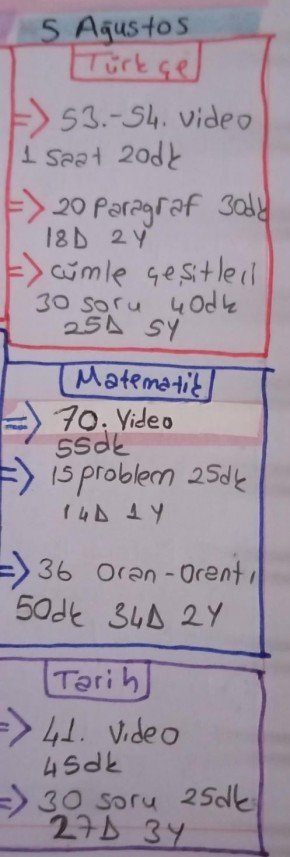 5 Ağustos
Türkçe
=> 53.-54. video
1 saat 20dk
=> 20 Paragraf 30dk
18D 2Y
=> cümle çeşitleri
30 soru 40dk
25D 5Y
Matematik
=> 70. Video
55dk
=> 15 problem 25dk
14D 1Y
=> 36 Oran-Orantı
50dk 34D 2Y
Tarih
=> 41. Video
45dk
=> 30 soru 25dk
27D 3Y